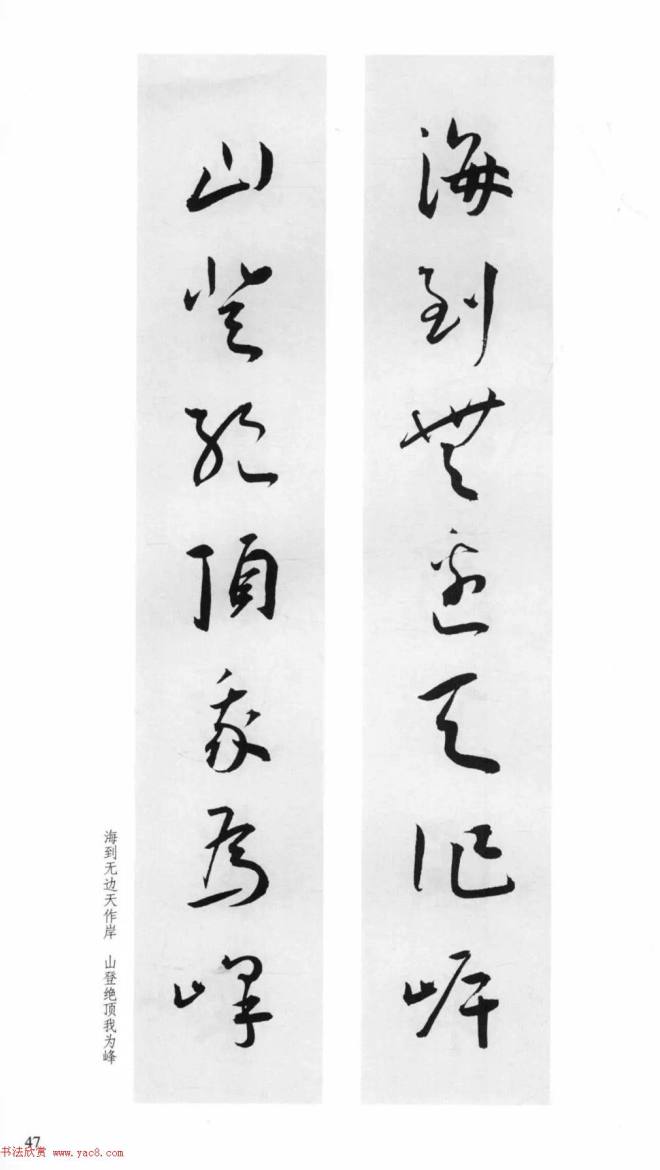 海到無邊天作岸
山登絶頂我為峰
海到无边天作岸 山登绝顶我为峰
47
书法欣赏 www.yac8.com